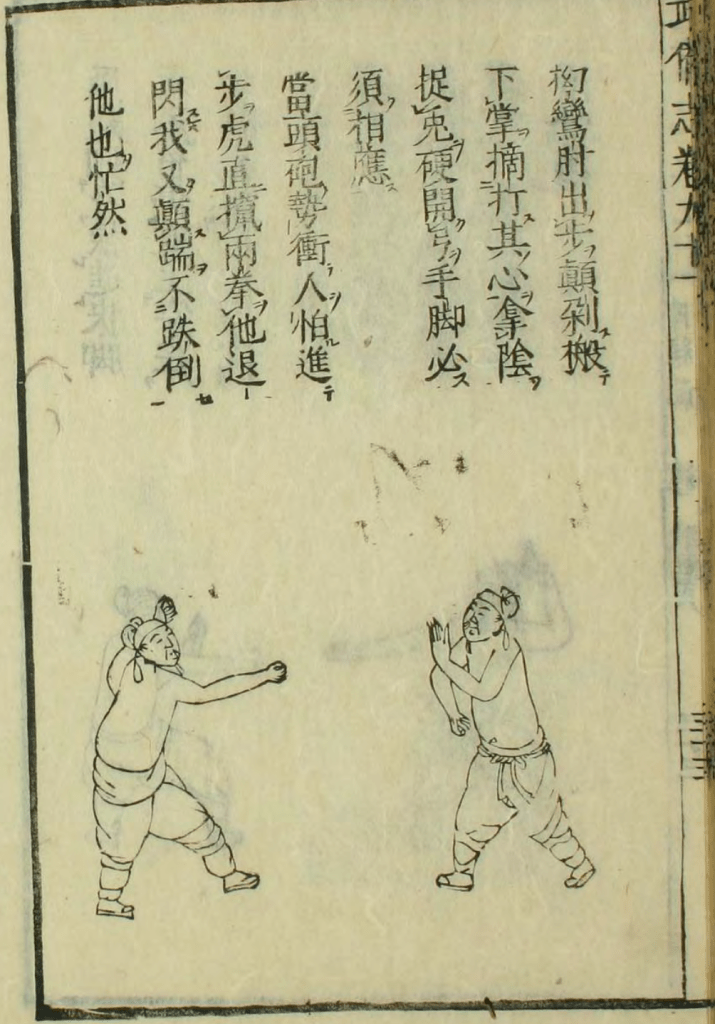 武備志卷九十一
拗鸞肘出步顛剁搬
下掌摘打其心拿陰
捉兔硬開弓手脚必
須相應
當頭砲勢衝人怕進
步虎直攛兩拳他退
閃我又顛踹不跌倒
他也忙然